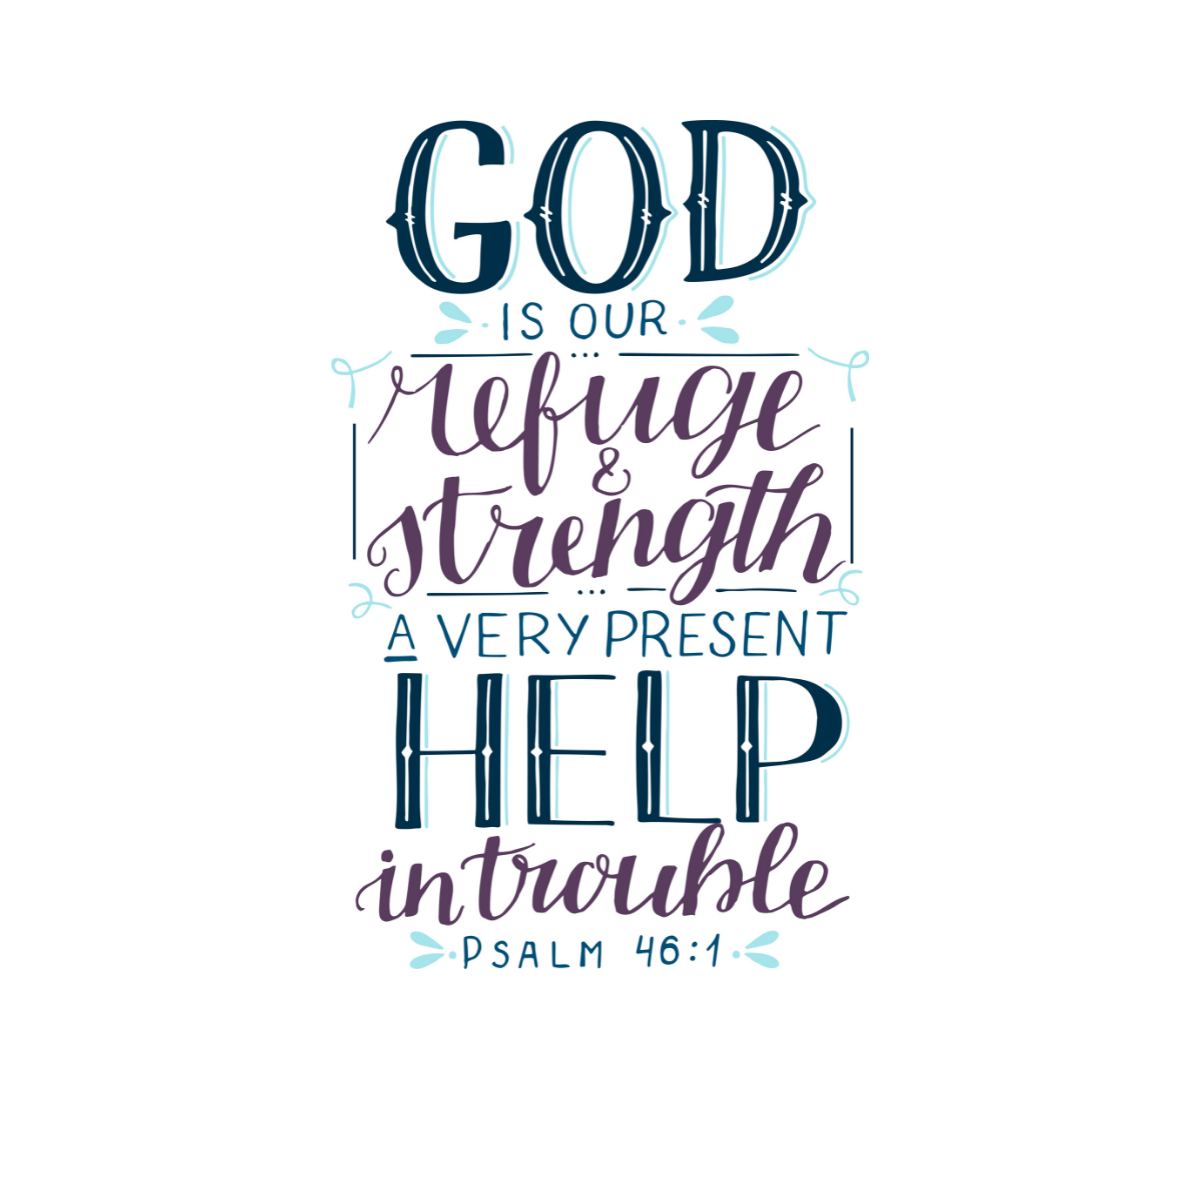 GOD
IS OUR
refuge
&
strength
A VERY PRESENT
HELP
in trouble
PSALM 46:1